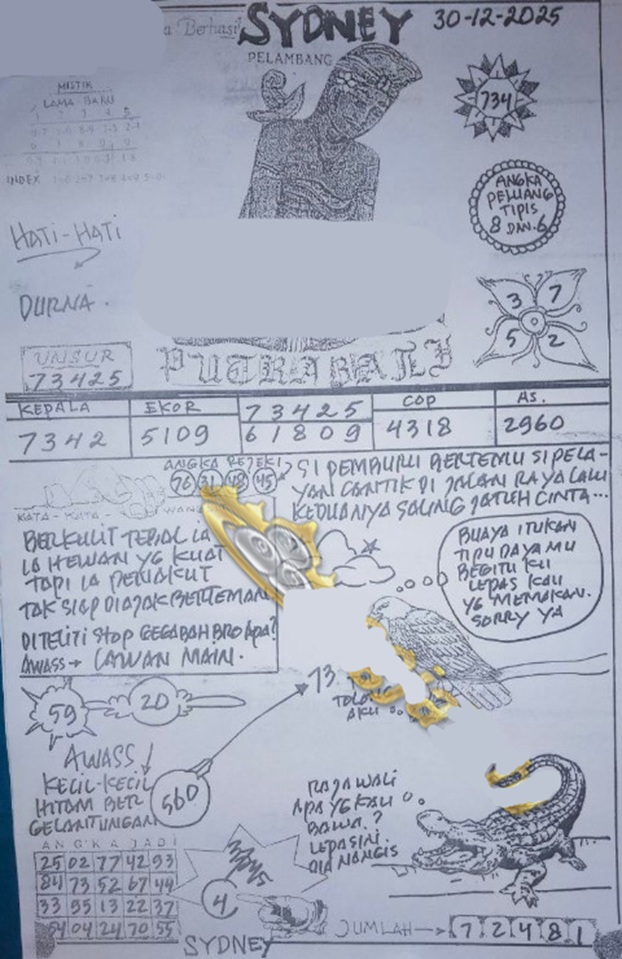 a Berhasil
SYDNEY
30-12-2025
PELAMBANG
MISTIK
LAMA - BARU
INDEX
734
ANGKA
PELUANG
TIPIS
8 DAN 6
HATI-HATI
DURNA
3 7
5 2
UNSUR
73425
PUTRA BALI
KEPALA
EKOR
73425
COP
AS.
7342
5109
61809
4318
2960
ANGKA REJEKI
76 31 48 45
SI PEMBURU BERTEMU SI PELA-
YAN CANTIK DI JALAN RAYA LALU
KEDUANYA SALING JATUH CINTA...
KATA - KATA - WANGSIT
BERKULIT TEBAL LA
LA HEWAN YG KUAT
TAPI IA PENAKUT
TAK SIAP DIAJAK BERTEMAN
DITELITI STOP GEGABAH BRO APA?
AWASS → LAWAN MAIN.
BUAYA ITUKAN
TIPU DAYA MU
BEGITU KU
LEPAS KAU
YG MEMAKAN.
SORRY YA
73
TOLO
AKU
59
20
AWASS
KECIL-KECIL
HITAM BER
GELANTUNGAN
560
RAJAWALI
APA YG KAU
BAWA.?
LEPASIN.
DIA NANGIS
ANGKA JADI
25 02 77 42 93
84 73 52 67 44
33 95 13 22 37
54 04 24 70 55
4
SYDNEY
JUMLAH → 7 2 4 8 1